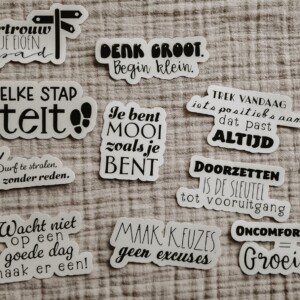 rtrouw
JE EIGEN
pad
DENK GROOT.
Begin klein.
TREK VANDAAG
iets positiefs aan
dat past
ALTIJD
ELKE STAP
teit
Je bent
MOOI
zoals je
BENT
DOORZETTEN
IS DE SLEUTEL
tot vooruitgang
Durf te stralen,
zonder reden.
Wacht niet
op een
goede dag
maak er een!
MAAK KEUZES
geen excuses
ONCOMFORT
=
Groei